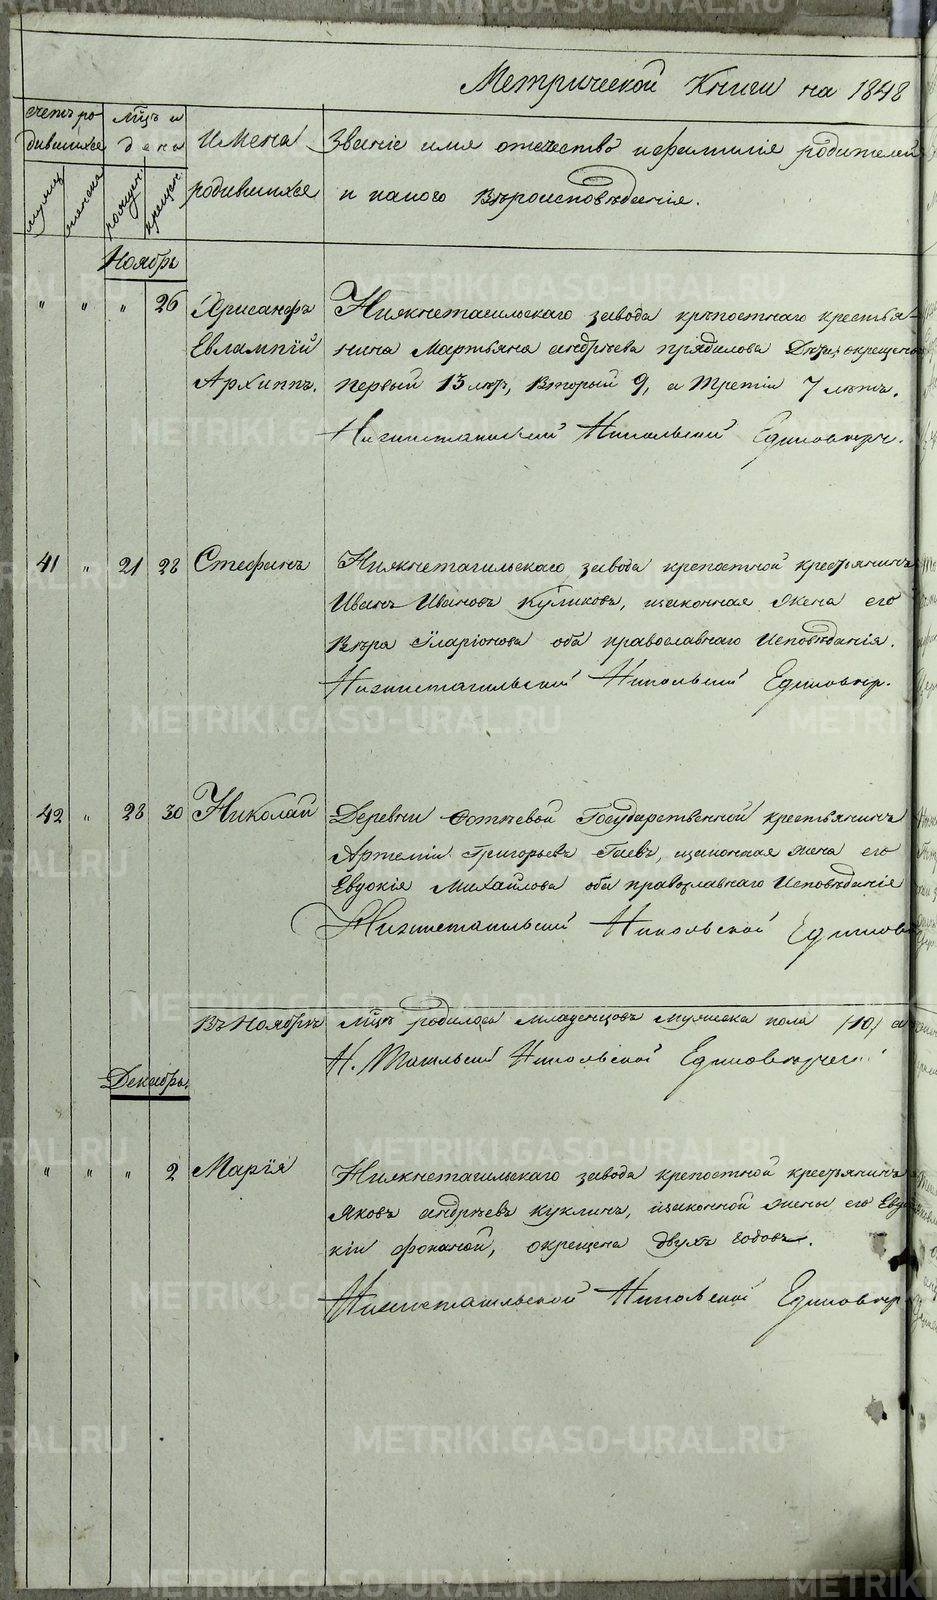 Метрической Книги на 1848
счетъ ро
дившихся
мцъ и
дены
Имена
родившихся
Званіе имя отечество и фамилія родителей
и какого Вѣроисповѣденія.
мужеска
женска
рожден
крещен
Ноябрь
" " " 26 Хрисанфъ Нижнетагильскаго завода крѣпостнаго крестья
Евлампій нина Мартьяна андрѣева прядилова Дѣти, окрещено
Архиппъ. первый 13 лѣтъ, Второй 9, а Третій 7 лѣтъ.
Нижнетагильский Никольский Единовѣрч.
41 " 21 28 Стефанъ Нижнетагильскаго завода крепостной крестьянинъ
Иванъ Ивановъ Куликовъ, изаконная жена его
Вѣра Иларіонова оба православнаго Исповѣданія.
Нижнетагильский Никольский Единовѣр.
42 " 28 30 Николай Деревни Государственной крестьянинъ
Артемій Григорьевъ Гаевъ, изаконная жена его
Евдокія Михайлова оба православнаго Исповѣданія
Нижнетагильский Никольской Единов
Въ Ноябрѣ мцѣ родилось младенцовъ мужеска пола (10) а
Н. Тагильский Никольской Единовѣрчес
Декабрь.
" " " 2 Марія Нижнетагильскаго завода крепостной крестьянинъ
Яковъ андрѣевъ куклинъ, изаконной жены его Евдо
кіи фокиной, окрещена двухъ годовъ.
Нижнетагильской Никольской Единовѣр
METRIKI.GASO-URAL.RU